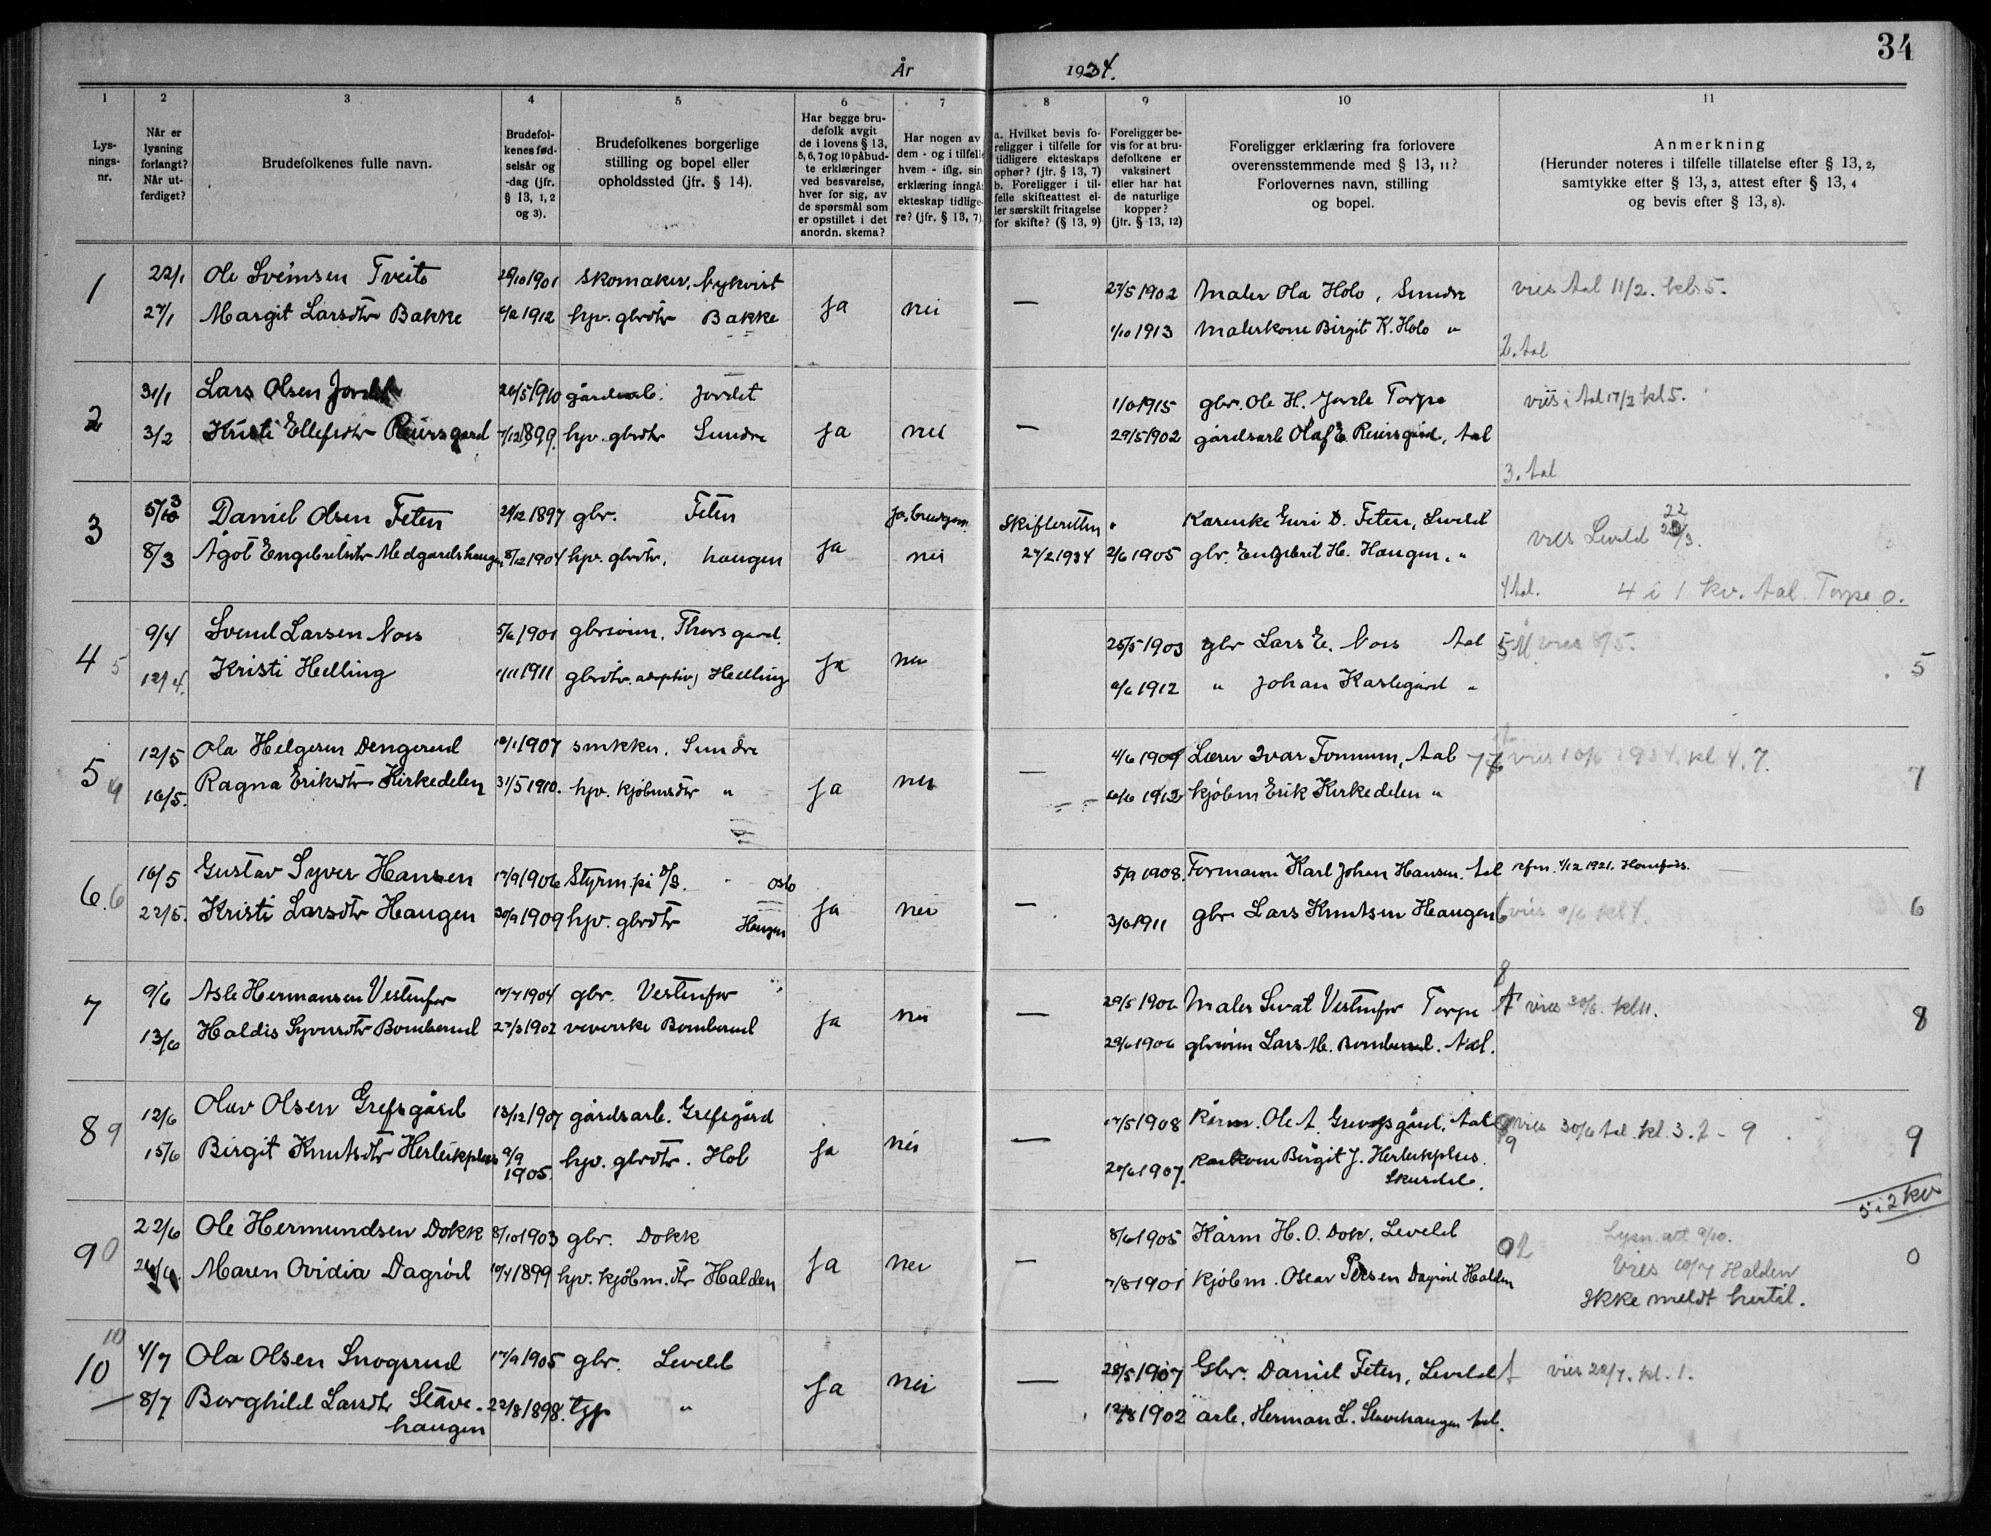 34
År 1934.
1
2
3
4
5
6
7
8
9
10
11
Lys-
nings-
nr.
Når er
lysning
forlangt?
Når ut-
ferdiget?
Brudefolkenes fulle navn.
Brudefol-
kenes fød-
selsår og
-dag (jfr.
§ 13, 1, 2
og 3).
Brudefolkenes borgerlige
stilling og bopel eller
opholdssted (jfr. § 14).
Har begge bru-
defolk avgit
de i lovens § 13,
5, 6, 7 og 10 påbud-
te erklæringer
ved besvarelse,
hver for sig, av
de spørsmål som
er opstillet i det
anordn. skema?
Har nogen av
dem - og i tilfelle
hvem - iflg. sin
erklæring inngå
ekteskap tidlige-
re? (jfr. § 13, 7).
a. Hvilket bevis fo-
religger i tilfelle for
tidligere ekteskaps
ophør? (jfr. § 13, 7)
b. Foreligger i til-
felle skifteattest el-
ler særskilt fritagelse
for skifte? (§ 13, 9)
Foreligger be-
vis for at bru-
defolkene er
vaksinert
eller har hat
de naturlige
kopper?
(jfr. § 13, 12)
Foreligger erklæring fra forlovere
overensstemmende med § 13, 11?
Forlovernes navn, stilling
og bopel.
Anmerkning
(Herunder noteres i tilfelle tillatelse efter § 13, 2,
samtykke efter § 13, 3, attest efter § 13, 4
og bevis efter § 13, 8).
1 22/1 Ole Sveinsen Tveito 1901 skomaker, Nykvist 27/5 1902 Maler Ola Holo, Sundre vies Aal 11/2. kl. 5.
27/1 Margit Larsdtr Bakke 1912 hjv. gbrdtr Bakke ja nei — 1/10 1913 Malerkone Birgit K. Holo "
2. Aal
2 31/1 Lars Olsen Jordet 1910 gårdsarb. Jordet 1915 gbr. Ole H. Jorde Torpo viis i Aal 17/2 kl 5.
3/2 Kristi Ellefsdtr Reiersgard 1899 hjv. gbrdtr Sundre ja nei — 29/5 1902 gårdsarb Olaf E. Reiersgård, Aal
3. Aal
3 5/3 Daniel Olsen Feten 1897 gbr. Feten ja, brudgom Skifteretten " Karenke Guri D. Feten, Leveld vies Leveld 22/3.
8/3 Ågot Engebretsdtr Medgardshaugen 8/12 1904 hjv. gbrdtr. haugen ja nei 27/2 1934 2/6 1905 gbr. Engebret H. Haugen. "
4 Aal. 4 i 1 kv. Aal. Torpo 0.
4 5 9/4 Svend Larsen Noss 1901 gbrsønn, Thorsgard. 25/5 1903 gbr Lars E. Noss Aal vies 8/5.
12/4. Kristi Helling 1911 gbrdtr. adoptiv, Helling ja nei 1912 " Johan Karlsgård " 5
5 4 12/5 Ola Helgesen Dengerud 1907 snekker. Sundre 4/6 1909 Lærer Ivar Tormum, Aal vies 1934. kl 4. 7.
16/5. Ragna Eriksdtr Kirkedelen 31/5 1910. hjv. kjøbmsdtr " ja nei — 1912 kjøbm Erik Kirkedelen " 7
6. 6 16/5 Gustav Syver Hansen 17/9 1906 Styrm. på D/S. Oslo 5/9 1908. Formann Karl Johan Hansen. Aal kfm. 4/12 1921. Hønefoss.
22/5. Kristi Larsdtr Haugen 30/9 1909 hjv. gbrdtr Haugen ja nei — 1911 gbr Lars Knutsen Haugen vies kl 4. 6
7 9/6 Asle Hermansen Vestenfor 1904 gbr. Vestenfor 29/5 1906 Maler Sevat Vestenfor Torpo vies 30/6. kl 11. 8
13/6 Haldis Syversdtr Bomberud 27/3 1902 veverske Bomberud ja nei — 29/6 1906 gbrsønn Lars M. Bomberud. Aal.
8 9 12/6 Olav Olsen Grefsgård 13/12 1907 gårdsarb. Grefsgård 1908 Kårm. Ole A. Grevsgård, Aal vies 30/6 Aal. kl. 3. 9
15/6 Birgit Knutsdtr Herleikplass 1905 hjv. gbrdtr. Hol ja nei — 1907. Birgit J. Herleikplass. 9
Skurdal.
5 i 2 kv
9 0 22/6 Ole Hermundsen Dokk 8/10 1903 gbr. Dokk 8/6 1905 Kårm H. O. Dok, Leveld Lysn. att 9/10.
Maren Ovidia Dagrød 1899 hjv. kjøbm. dtr Halden ja nei — 7/8 1901 kjøbm. Oscar Dagrød Halden Vies 10/7 Halden 0
Ikke meldt hertil.
10 10 4/7 Ola Olsen Snogsrud 17/9 1905 gbr. Leveld 28/5 1907 Gbr. Daniel Feten, Leveld vies 28/7. kl. 1.
8/7 Borghild Larsdtr Slåve- 22/8 1898. tjp " ja nei — 1902 arb. Herman L. Slaavehaugen Aal.
haugen